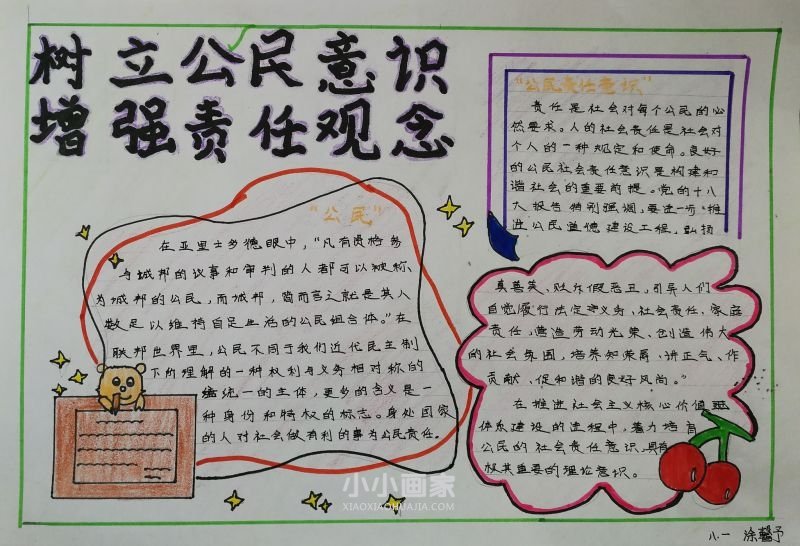 树立公民意识
增强责任观念
“公民”
在亚里士多德眼中,“凡有资格参
与城邦的议事和审判的人都可以被称
为城邦的公民,而城邦,简而言之就是其人
数足以维持自足生活的公民组合体。”在
联邦世界里,公民不同于我们近代民主制
下所理解的一种权利与义务相对称的
统一的主体,更多的含义是一
种身份和特权的标志。身处国家
的人对社会做有利的事为公民责任。
“公民责任意识”
责任是社会对每个公民的必
然要求。人的社会责任是社会对
个人的一种规定和使命。良好
的公民社会责任意识是构建和
谐社会的重要前提。党的十八
大报告特别强调,要进一步“推
进公民道德建设工程,弘扬
真善美、贬斥假恶丑,引导人们
自觉履行法定义务,社会责任、家庭
责任,营造劳动光荣、创造伟大
的社会氛围,培养知荣辱、讲正气、作
贡献、促和谐的良好风尚。”
在推进社会主义核心价值
体系建设的进程中,着力培育
公民的社会责任意识,具有
极其重要的理论意识。
小小画家
XIAOXIAOHUAJIA.COM
八.一 涂馨予